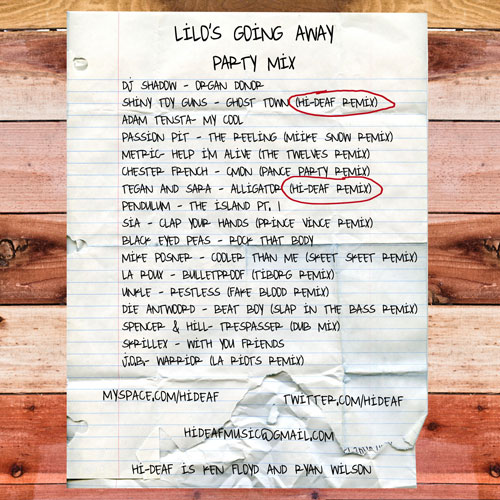 LiLO'S GOiNG AWAY
PARTY MiX
DJ SHADOW - ORGAN DONOR
SHiNY TOY GUNS - GHOST TOWN (Hi-DEAF REMiX)
ADAM TENSTA- MY COOL
PASSiON PiT - THE REELiNG (MiiKE SNOW REMiX)
METRiC- HELP i'M ALiVE (THE TWELVES REMiX)
CHESTER FRENCH - C'MON (PANCE PARTY REMiX)
TEGAN AND SARA - ALLiGATOR (Hi-DEAF REMiX)
PENDULUM - THE iSLAND PT. 1
SiA - CLAP YOUR HANDS (PRiNCE ViNCE REMiX)
BLACK EYED PEAS - ROCK THAT BODY
MiKE POSNER - COOLER THAN ME (SKEET SKEET REMiX)
LA ROUX - BULLETPROOF (TiBORG REMiX)
UNKLE - RESTLESS (FAKE BLOOD REMiX)
DiE ANTWOORD - BEAT BOY (SLAP iN THE BASS REMiX)
SPENCER & HiLL- TRESPASSER (DUB MiX)
SKRiLLEX - WiTH YOU FRiENDS
J.O.B.- WARRiOR (LA RiOTS REMiX)
MYSPACE.COM/HiDEAF
TWiTTER.COM/HiDEAF
HiDEAFMUSiC@GMAiL.COM
Hi-DEAF iS KEN FLOYD AND RYAN WiLSON